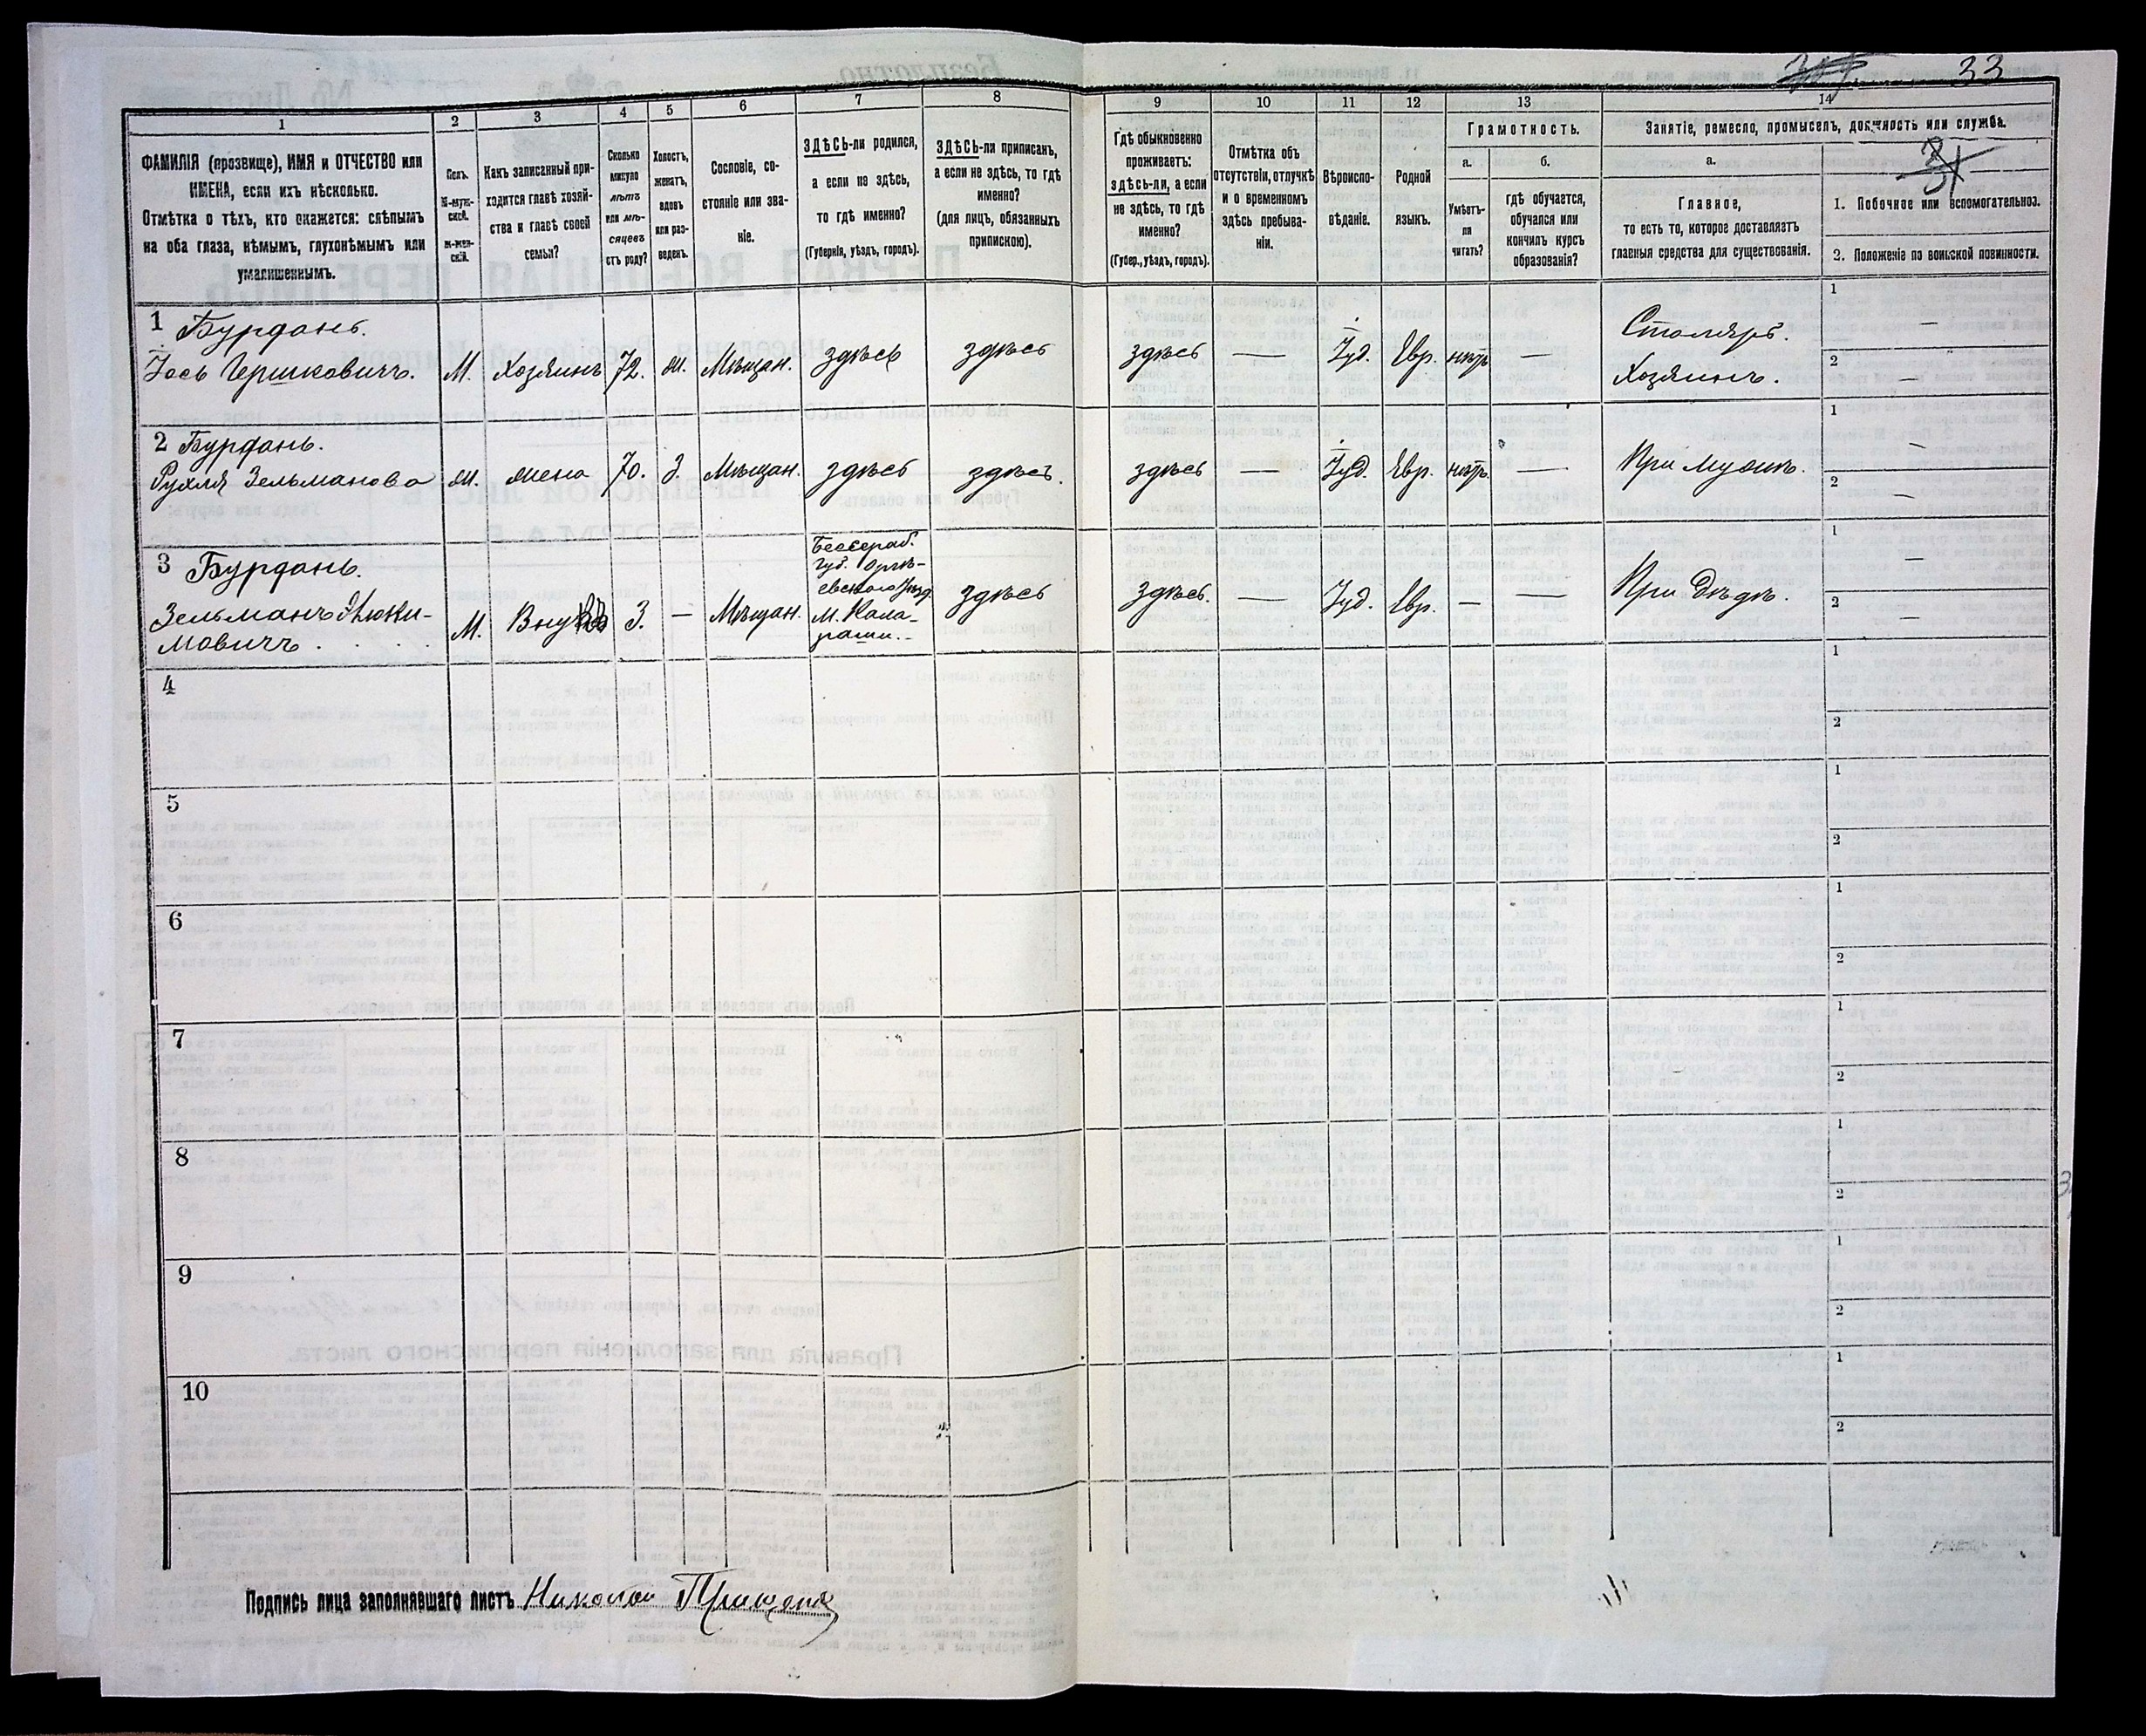 33
1
2
3
4
5
6
7
8
9
10
11
12
13
14
ФАМИЛІЯ (прозвище), ИМЯ и ОТЧЕСТВО или
ИМЕНА, если ихъ нѣсколько.
Отмѣтка о тѣхъ, кто окажется: слѣпымъ
на оба глаза, нѣмымъ, глухонѣмымъ или
умалишеннымъ.
Полъ.
М-муж-
ской.
ж-жен-
скій.
Какъ записанный при-
ходится главѣ хозяй-
ства и главѣ своей
семьи?
Сколько
минуло
лѣтъ
или мѣ-
сяцевъ
отъ роду?
Холостъ,
женатъ,
вдовъ
или раз-
веденъ.
Сословіе, со-
стояніе или зва-
ніе.
ЗДѢСЬ-ли родился,
а если не здѣсь,
то гдѣ именно?
(Губернія, уѣздъ, городъ).
ЗДѢСЬ-ли приписанъ,
а если не здѣсь, то гдѣ
именно?
(для лицъ, обязанныхъ
припискою).
Гдѣ обыкновенно
проживаетъ:
здѣсь-ли, а если
не здѣсь, то гдѣ
именно?
(Губер., уѣздъ, городъ).
Отмѣтка объ
отсутствіи, отлучкѣ
и о временномъ
здѣсь пребыва-
ніи.
Вѣроиспо-
вѣданіе.
Родной
языкъ.
Грамотность.
а.
Умѣетъ-
ли
читать?
б.
гдѣ обучается,
обучался или
кончилъ курсъ
образованія?
Занятіе, ремесло, промыселъ, должность или служба.
а.
Главное,
то есть то, которое доставляетъ
главныя средства для существованія.
31
1. Побочное или вспомогательное.
2. Положеніе по воинской повинности.
1 Бурданъ.
Іось Гершковичъ.
М.
Хозяинъ
72.
ж.
Мѣщан.
здѣсь
здѣсь
здѣсь
—
Іуд.
Евр.
нѣтъ
—
Столяръ.
Хозяинъ.
1
—
2
—
2 Бурданъ.
Рухля Зельманова
ж.
жена
70.
З.
Мѣщан.
здѣсь
здѣсь.
здѣсь
—
Іуд.
Евр.
нѣтъ.
—
При мужѣ.
1
—
2
—
3 Бурданъ.
Зельманъ
мовичъ
М.
Внукъ
3.
—
Мѣщан.
Бессераб.
губ. Оргѣ-
евского уѣзд
М. Кала-
раши.
здѣсь
здѣсь.
—
Іуд.
Евр.
—
—
При дѣдѣ.
1
—
2
—
4
1
2
5
1
2
6
1
2
7
1
2
8
1
2
9
1
2
10
1
2
Подпись лица заполнявшаго листъ Николай